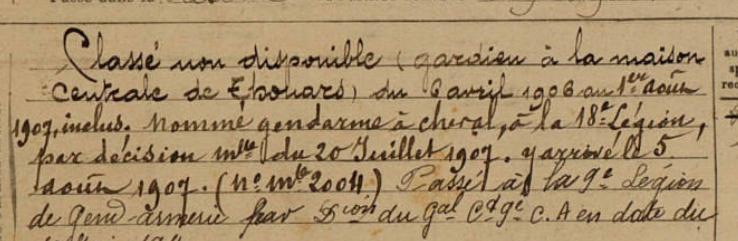 Classé non disponible (gardien à la maison
Centrale de Thouars) du 6 avril 1906 au 1er août
1907, inclus. Nommé gendarme à cheval, à la 18e Légion,
par décision mlle du 20 Juillet 1907. y arrivé le 5
août 1907. (No mle 2004) Passé à la 9e Légion
de Gend-armerie par Dion du Gal Ct 9e C. A en date du